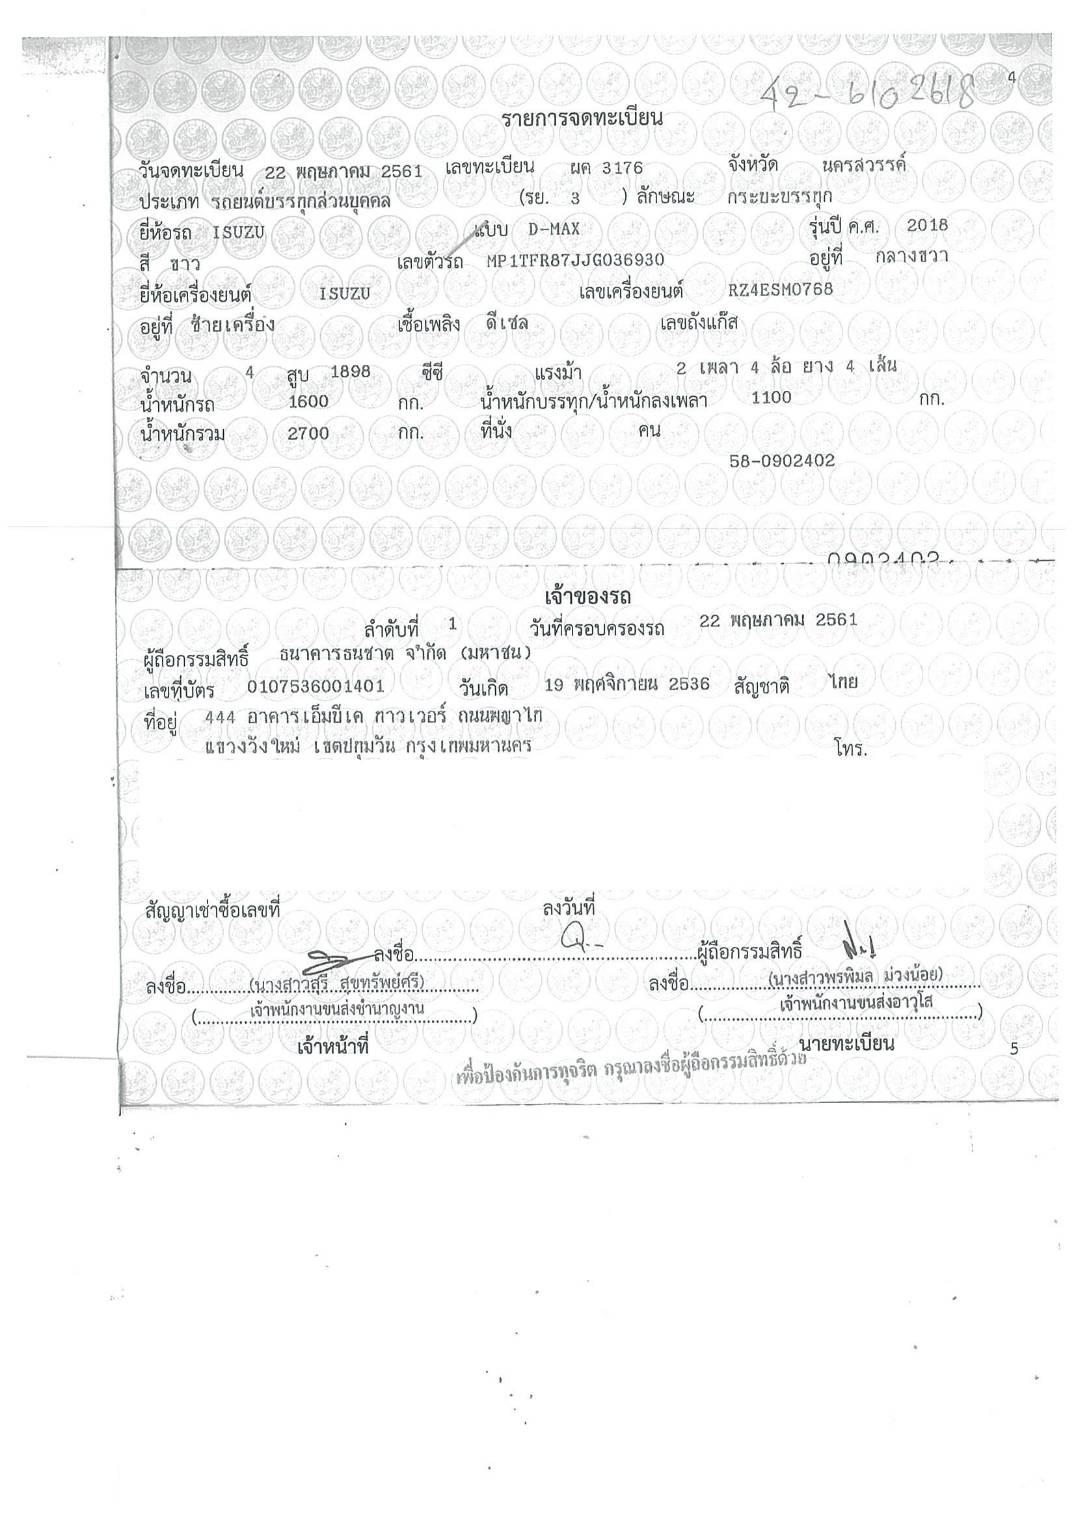 4
42-6102618
รายการจดทะเบียน
วันจดทะเบียน 22 พฤษภาคม 2561 เลขทะเบียน ผค 3176 จังหวัด นครสวรรค์
ประเภท รถยนต์บรรทุกส่วนบุคคล (รย. 3 ) ลักษณะ กระบะบรรทุก
ยี่ห้อรถ ISUZU แบบ D-MAX รุ่นปี ค.ศ. 2018
สี ขาว เลขตัวรถ MP1TFR87JJG036930 อยู่ที่ กลางขวา
ยี่ห้อเครื่องยนต์ ISUZU เลขเครื่องยนต์ RZ4ESM0768
อยู่ที่ ซ้ายเครื่อง เชื้อเพลิง ดีเซล เลขถังแก๊ส
จำนวน 4 สูบ 1898 ซีซี แรงม้า 2 เพลา 4 ล้อ ยาง 4 เส้น
น้ำหนักรถ 1600 กก. น้ำหนักบรรทุก/น้ำหนักลงเพลา 1100 กก.
น้ำหนักรวม 2700 กก. ที่นั่ง คน
58-0902402
0902402
เจ้าของรถ
ลำดับที่ 1 วันที่ครอบครองรถ 22 พฤษภาคม 2561
ผู้ถือกรรมสิทธิ์ ธนาคารธนชาต จำกัด (มหาชน)
เลขที่บัตร 0107536001401 วันเกิด 19 พฤศจิกายน 2536 สัญชาติ ไทย
ที่อยู่ 444 อาคารเอ็มบีเค ทาวเวอร์ ถนนพญาไท
แขวงวังใหม่ เขตปทุมวัน กรุงเทพมหานคร โทร.
สัญญาเช่าซื้อเลขที่ ลงวันที่
ลงชื่อ ผู้ถือกรรมสิทธิ์
ลงชื่อ (นางสาวสุรี สุขทรัพย์ศรี) ลงชื่อ (นางสาวพรพิมล ม่วงน้อย)
(เจ้าพนักงานขนส่งชำนาญงาน) (เจ้าพนักงานขนส่งอาวุโส)
เจ้าหน้าที่ นายทะเบียน
เพื่อป้องกันการทุจริต กรุณาลงชื่อผู้ถือกรรมสิทธิ์ด้วย
5